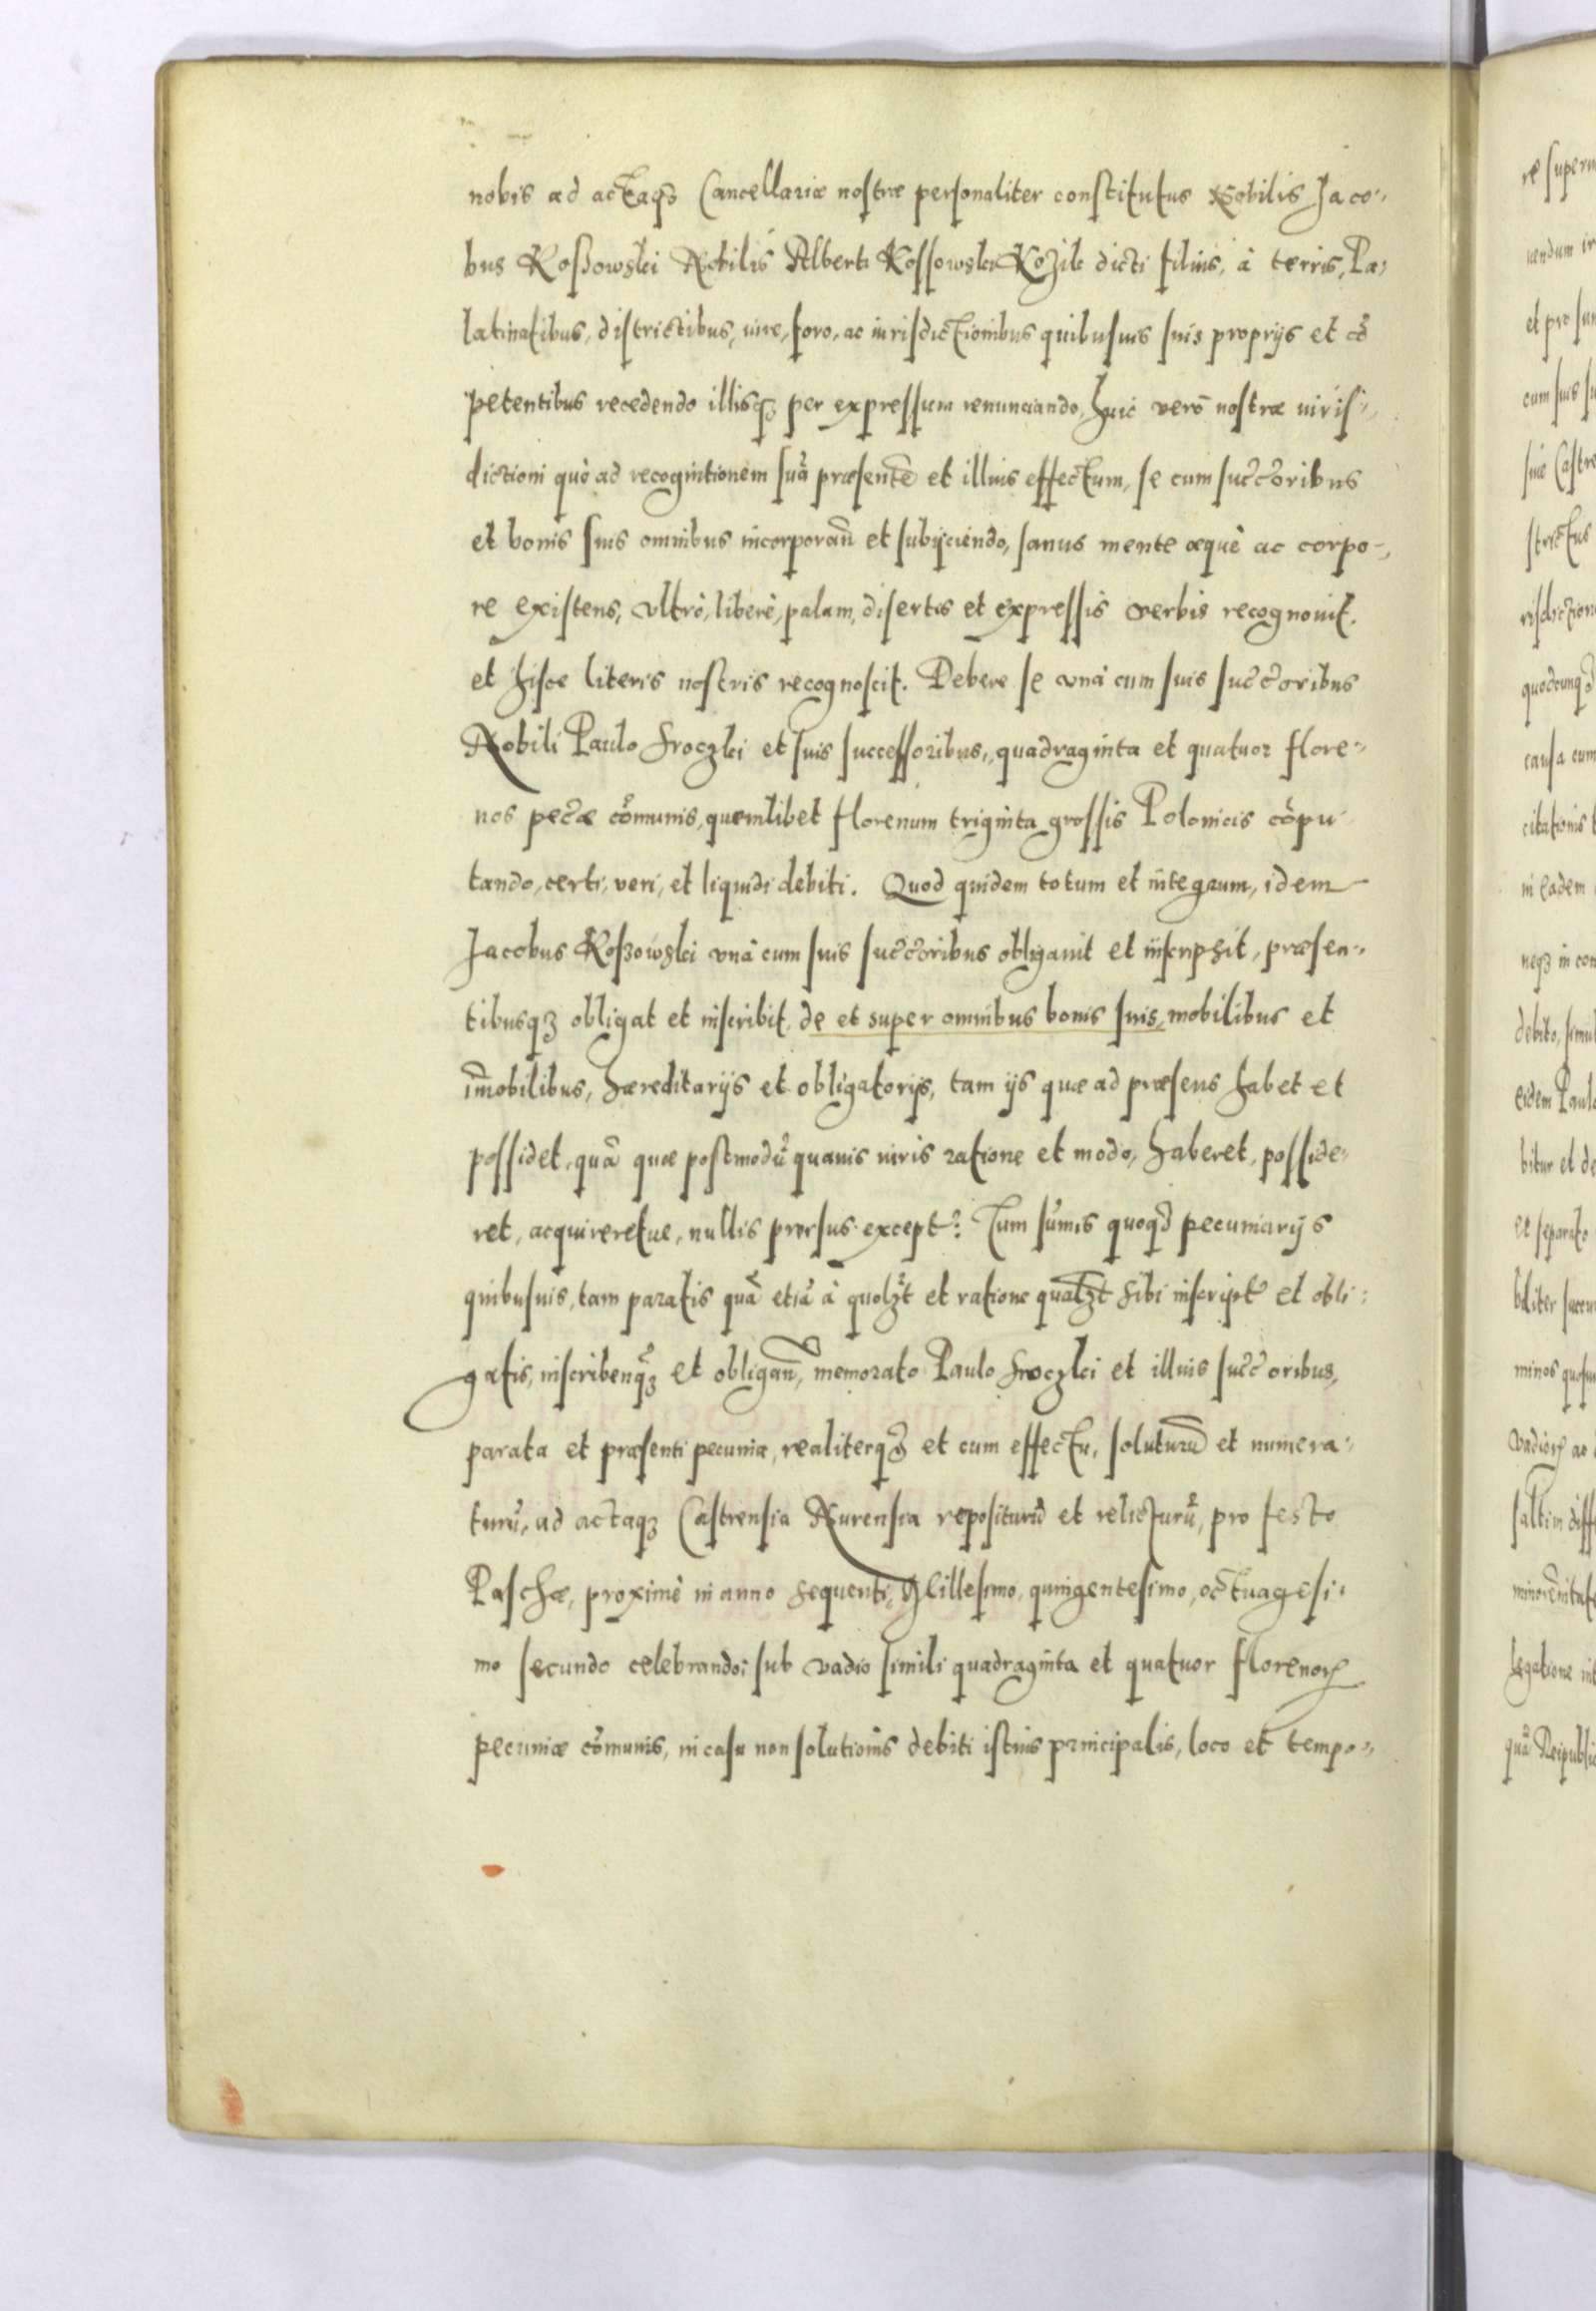 nobis ad actaqȝ Cancellariæ nostræ personaliter constitutus Nobilis Jaco-
bus Koßowski Nobilis Alberti Kossowski Kozik dicti filius, à terris, Pa-
latinatibus, districtibus, iure, foro, ac iurisdictionibus quibusuis suis proprijs et cõ
petentibus recedendo illisqȝ per expressum renunciando, huic verò nostræ iuris-
dictioni quò ad recognitionem suã præsentẽ et illius effectum, se cum succ̃oribus
et bonis suis omnibus incorporañ et subijciendo, sanus mente æquè ac corpo-
re existens, vltrò, liberè, palam, disertis et expressis verbis recognouit,
et hisce literis nostris recognoscit. Debere se vnà cum suis succ̃oribus
Nobili Paulo Sroczki et suis successoribus, quadraginta et quatuor flore-
nos pecc̃æ cõmunis, quemlibet florenum triginta grossis Polonicis cõpu
tando, certi, veri, et liquidi debiti. Quod quidem totum et integrum, idem
Jacobus Koßowski vnà cum suis succ̃oribus obligauit et inscripsit, præsen-
tibusqȝ obligat et inscribit, de et super omnibus bonis suis, mobilibus et
im̃obilibus, hæreditarijs et obligatorijs, tam ijs quæ ad præsens habet et
possidet, quã quæ postmodũ quauis iuris ratione et modo, haberet, posside-
ret, acquireretue, nullis prorsus except̃. Tum sum̃is quoqȝ pecuniarijs
quibusuis, tam paratis quã etiã à quolȝt et ratione qualȝt sibi inscript̃ et obli-
gatis, inscribenq̃ȝ et obligañ, memorato Paulo Sroczki et illius succ̃oribus,
parata et præsenti pecunia, realiterqȝ et cum effectu, soluturũ et numera-
turũ, ad actaqȝ Castrensia Nurensia repositurũ et relicturũ, pro festo
Paschæ, proximè in anno sequenti, Millesimo, quingentesimo, octuagesi-
mo secundo celebrando; sub vadio simili quadraginta et quatuor florenorꝝ
pecuniæ cõmunis, in casu non solutionis debiti istius principalis, loco et tempo-